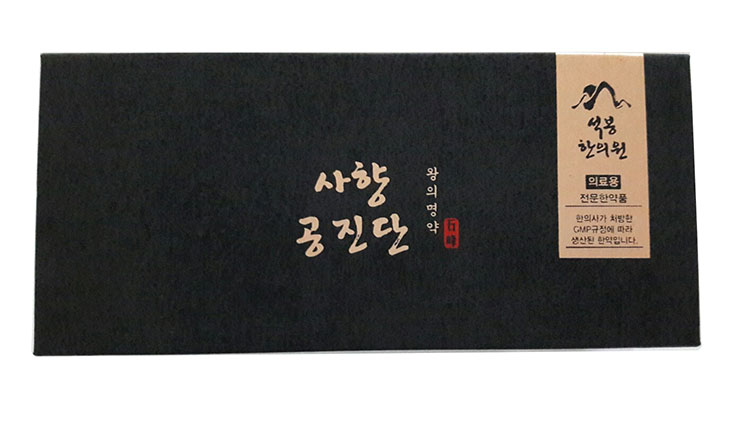 사향
공진단
왕의명약
石峰
석봉
한의원
의료용
전문한약품
한의사가 처방한
GMP규정에 따라
생산된 한약입니다.